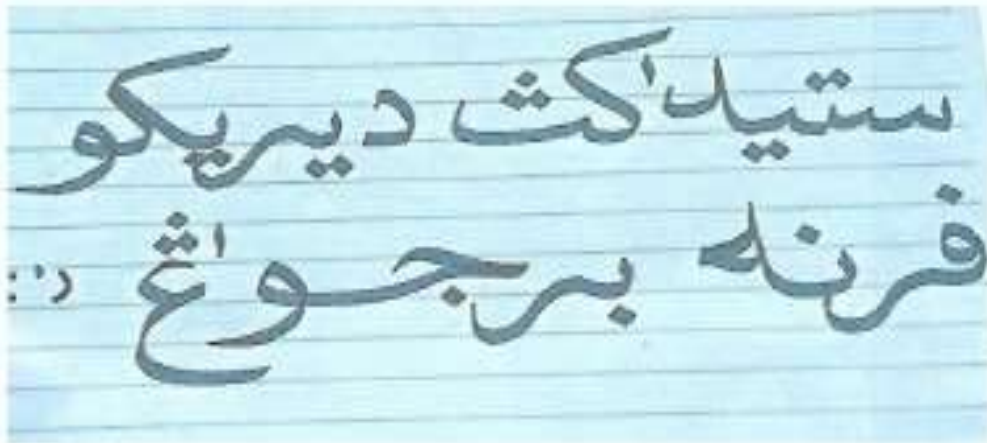 ستيداكث ديريكو
فرنه برجواڠ :')